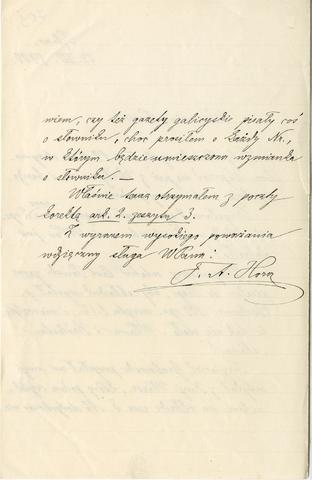 wiem, czy też gazety galicyjskie pisały coś
o słowniku, choć prosiłem o każdy Nr.,
w którym będzie umieszczona wzmianka
o słowniku. —
Właśnie teraz otrzymałem z poczty
korektę ark. 2. zeszytu 3.
Z wyrazem wysokiego poważania
wdzięczny sługa WPana:
F. A. Hora